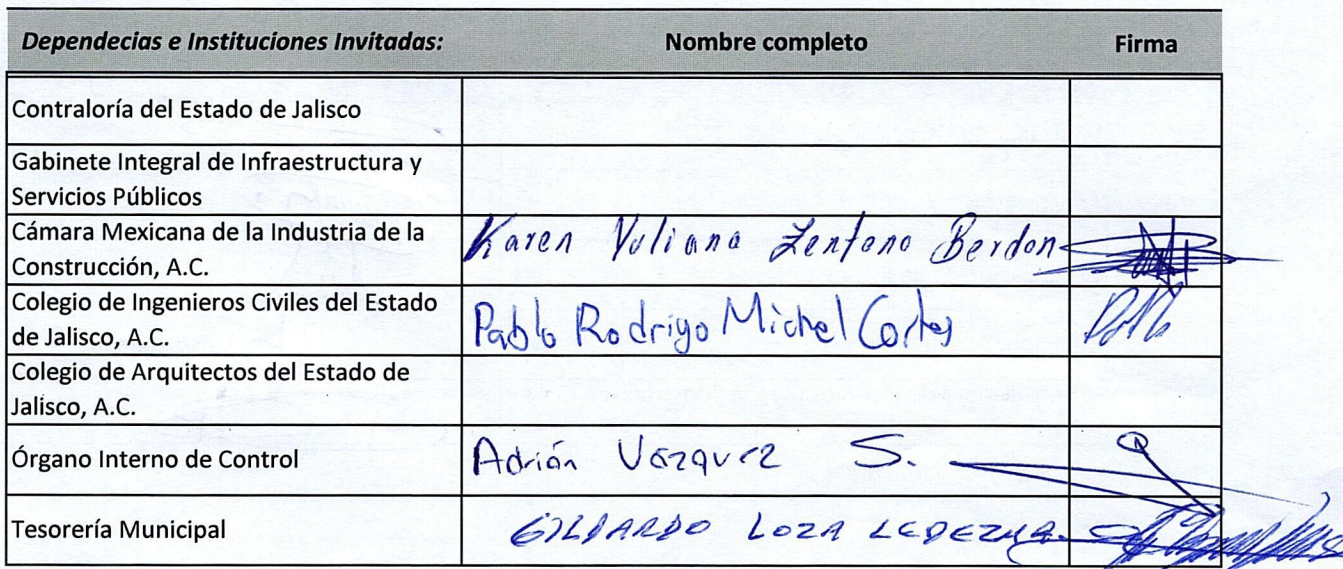 Dependecias e Instituciones Invitadas: Nombre completo Firma
Contraloría del Estado de Jalisco
Gabinete Integral de Infraestructura y
Servicios Públicos
Cámara Mexicana de la Industria de la
Construcción, A.C.
Karen Yuliana Zenteno Berdon
Colegio de Ingenieros Civiles del Estado
de Jalisco, A.C.
Pablo Rodrigo Michel Cortes
Colegio de Arquitectos del Estado de
Jalisco, A.C.
Órgano Interno de Control Adrián Vazquez S.
Tesorería Municipal GILDARDO LOZA LEDEZMA